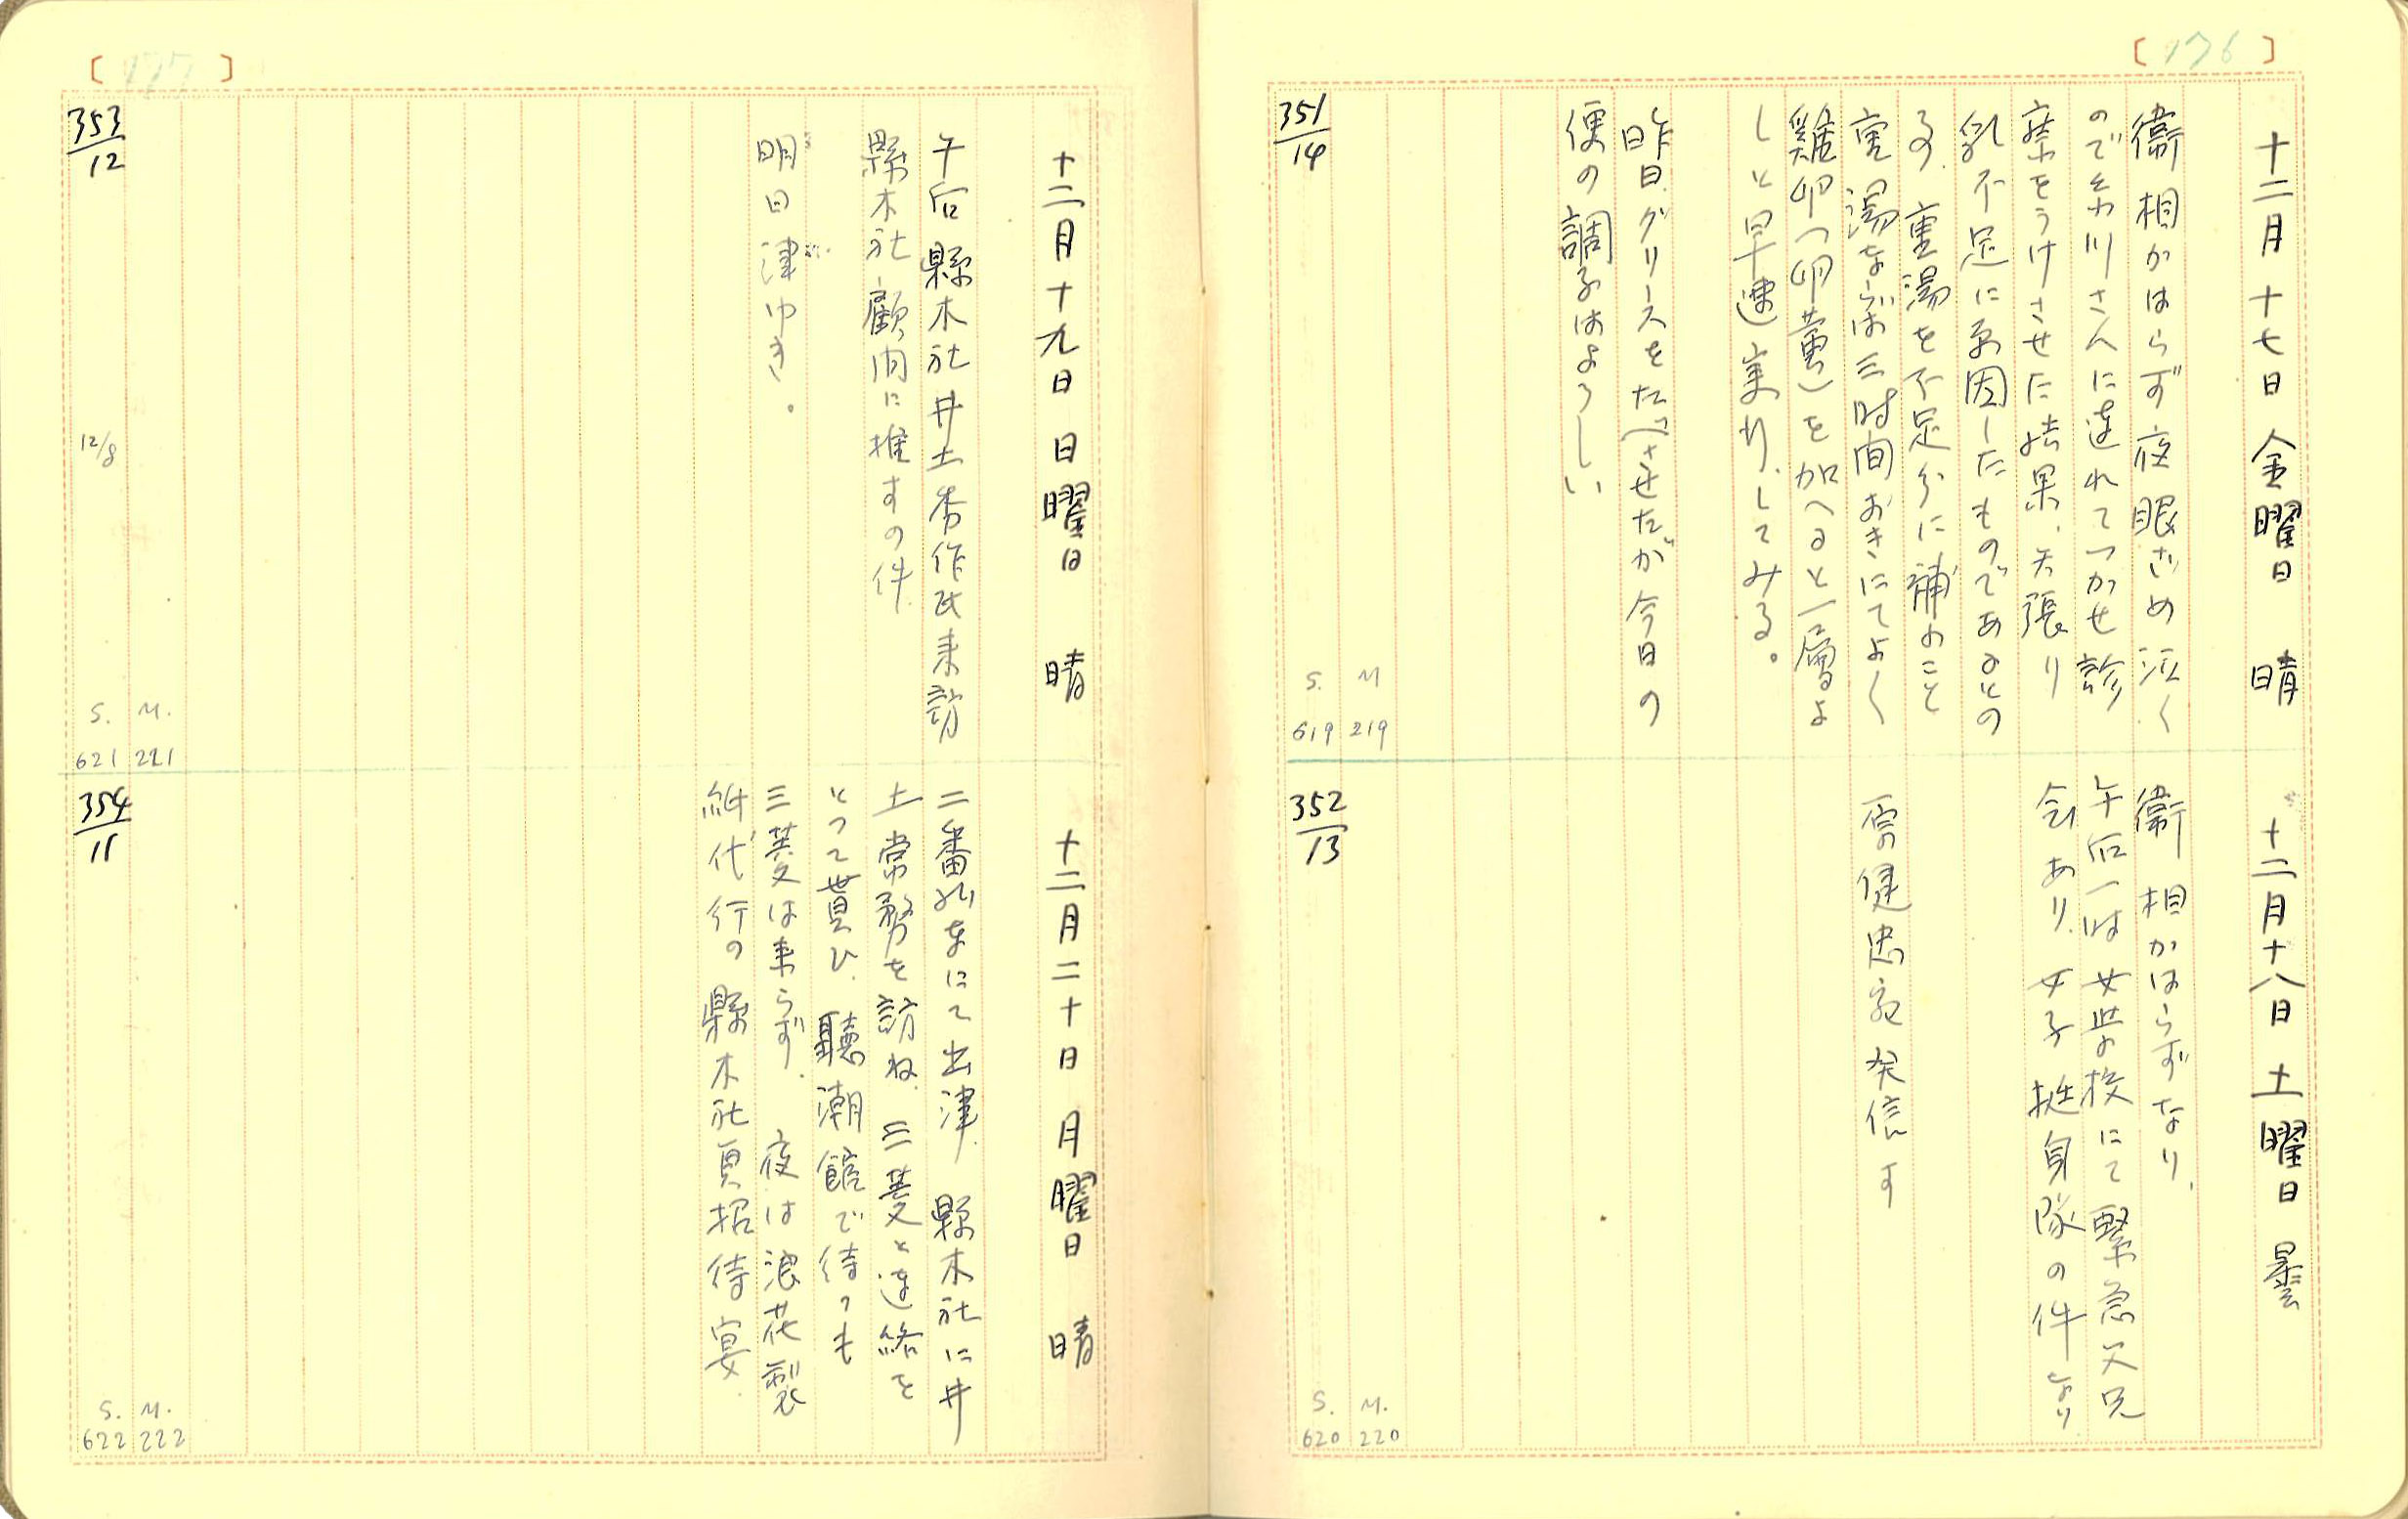 〔176〕
十二月十七日 金曜日 晴
衞相かはらず夜眼ざめ泣く
ので糸川さんに連れてつかせ診
察をうけさせた結果、矢張り
乳不足に原因したものであるとの
る、重湯を不足分に補ふこと
重湯ならば三时间おきにてよく
雞卵(卵黄)を加へると一層よ
しと早速実行してみる。
昨日グリースをたべさせたが今日の
便の調子はよろしい
351/14
S. M
619 219
十二月十八日 土曜日 曇
衞相かはらずなり、
午后一时女学校にて緊急父兄
会あり、女子挺身隊の件なり
健忠宛発信す
352/13
S. M.
620 220
〔177〕
十二月十九日 日曜日 晴
午后縣木社井土秀作氏来訪
縣木社顧问に推すの件
明日津ゆき。
353/12
12/8
S. M.
621 221
十二月二十日 月曜日 晴
二番列車にて出津、縣木社に井
土常務を訪ね、三菱と連絡を
とつて貰ひ、聽潮館で待つも
三菱は来らず、夜は浪花製
紙代行の縣木社員招待宴、
354/11
S. M.
622 222